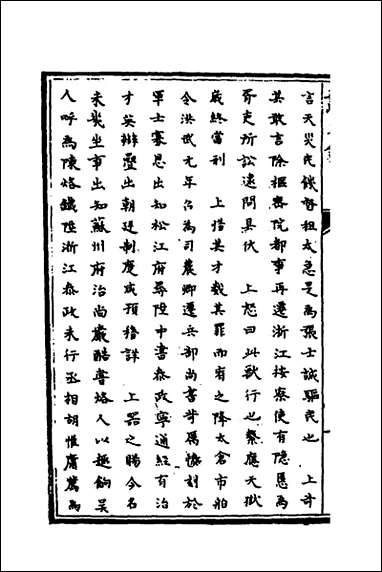 言天災民饑督租太急是為張士誠驅民也　上奇
其敢言除樞密院都事再遷浙江按察使有隱慝為
胥吏所訟逮問具伏　上怒曰此獸行也繫應天獄
歲終當刑　上惜其才數其罪而宥之降太倉市舶
令洪武元年召為司農卿遷兵部尚書苛厲慘刻於
軍士寡恩出知松江府尋陞中書參政寧通經有治
才英辯蠭出朝廷制度咸預稽詳　上器之賜今名
未幾坐事出知蘇州府治尚嚴酷嘗烙人以趣餉吳
人呼為陳烙鐵陞浙江參政未行丞相胡惟庸薦為